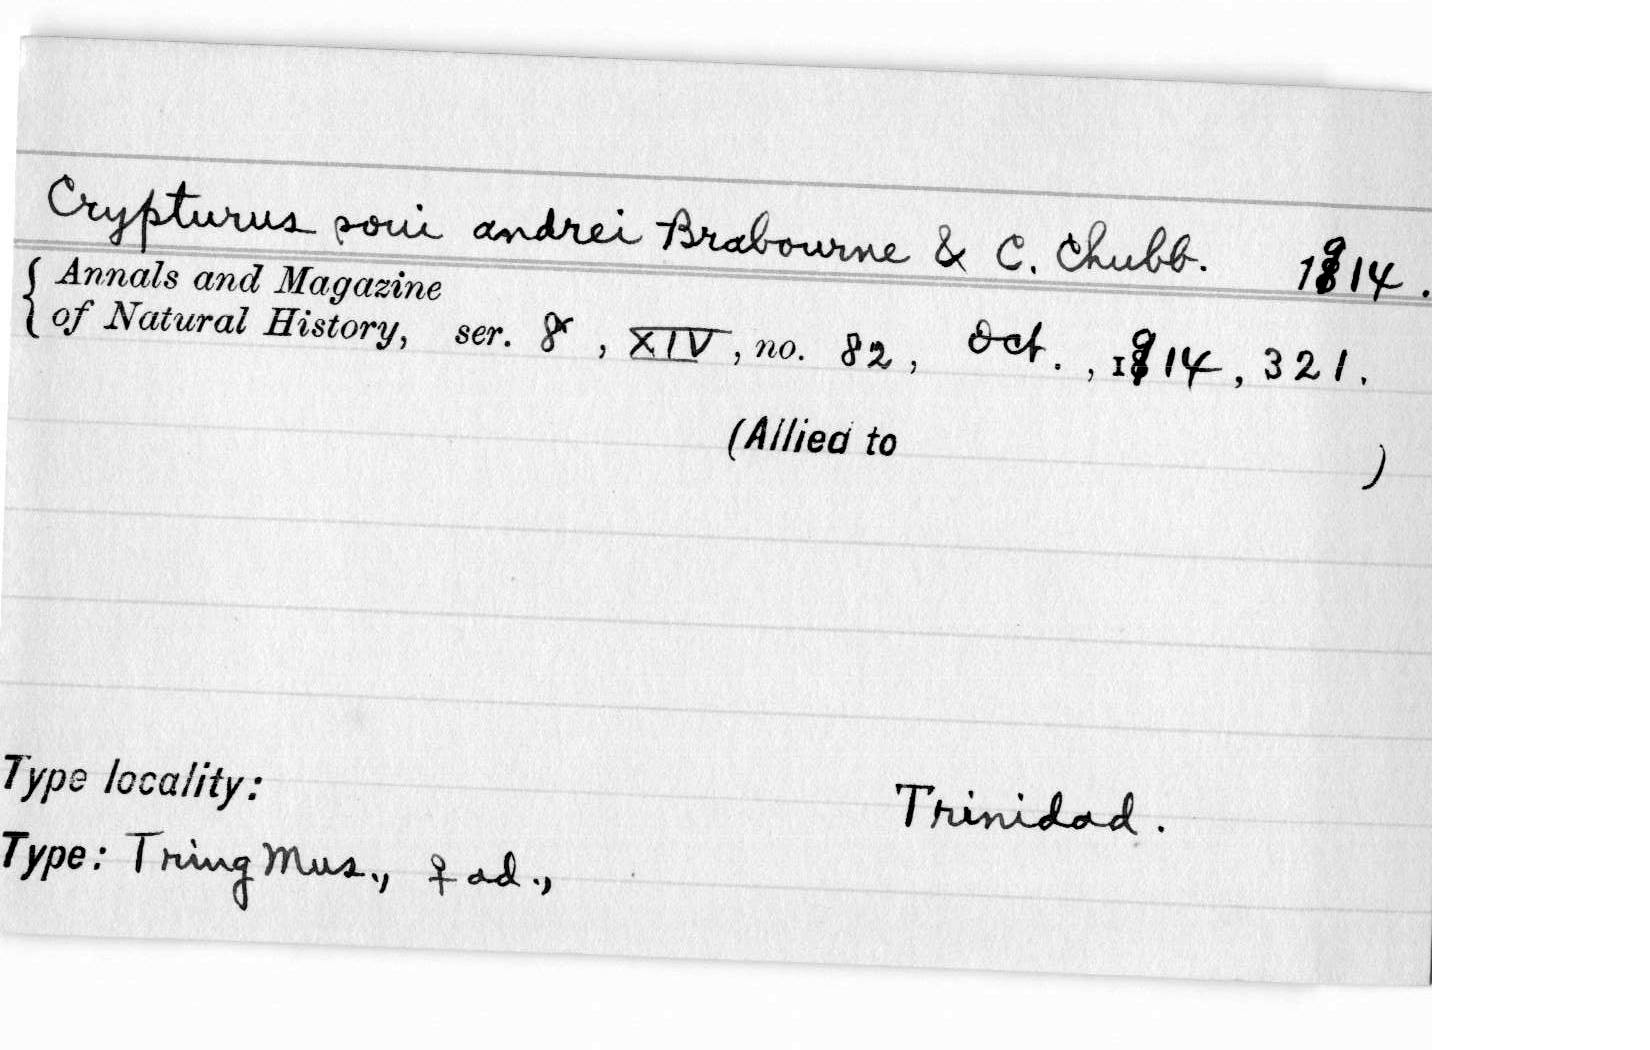 Crypturus soui andrei Brabourne & C. Chubb. 1914.
Annals and Magazine
of Natural History, ser. 8, XIV, no. 82, Oct., 1914, 321.
(Allied to )
Type locality: Trinidad.
Type: Tring Mus., ♀ ad.,